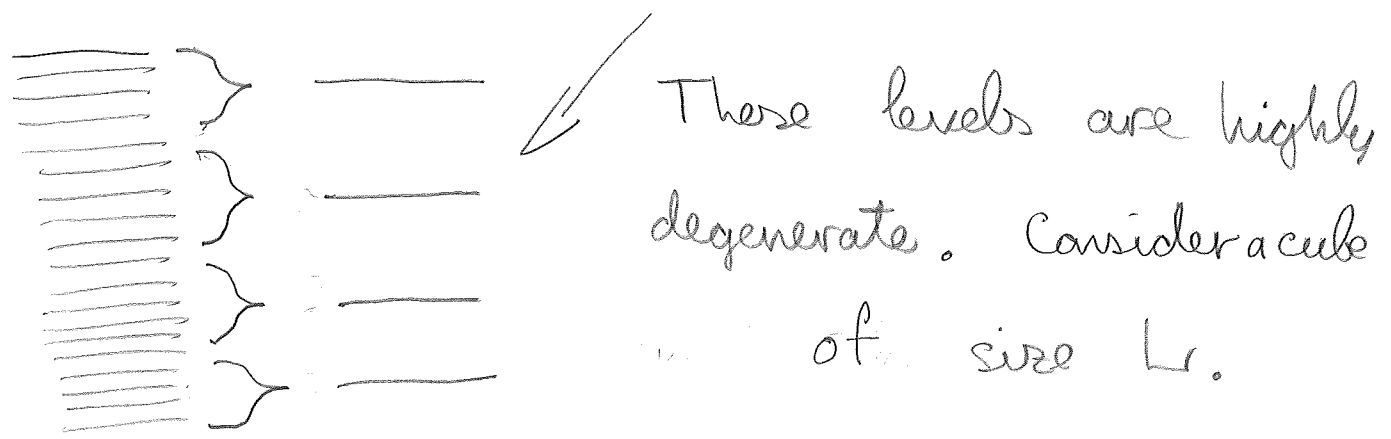 These levels are highly
degenerate. Consider a cube
of size L.